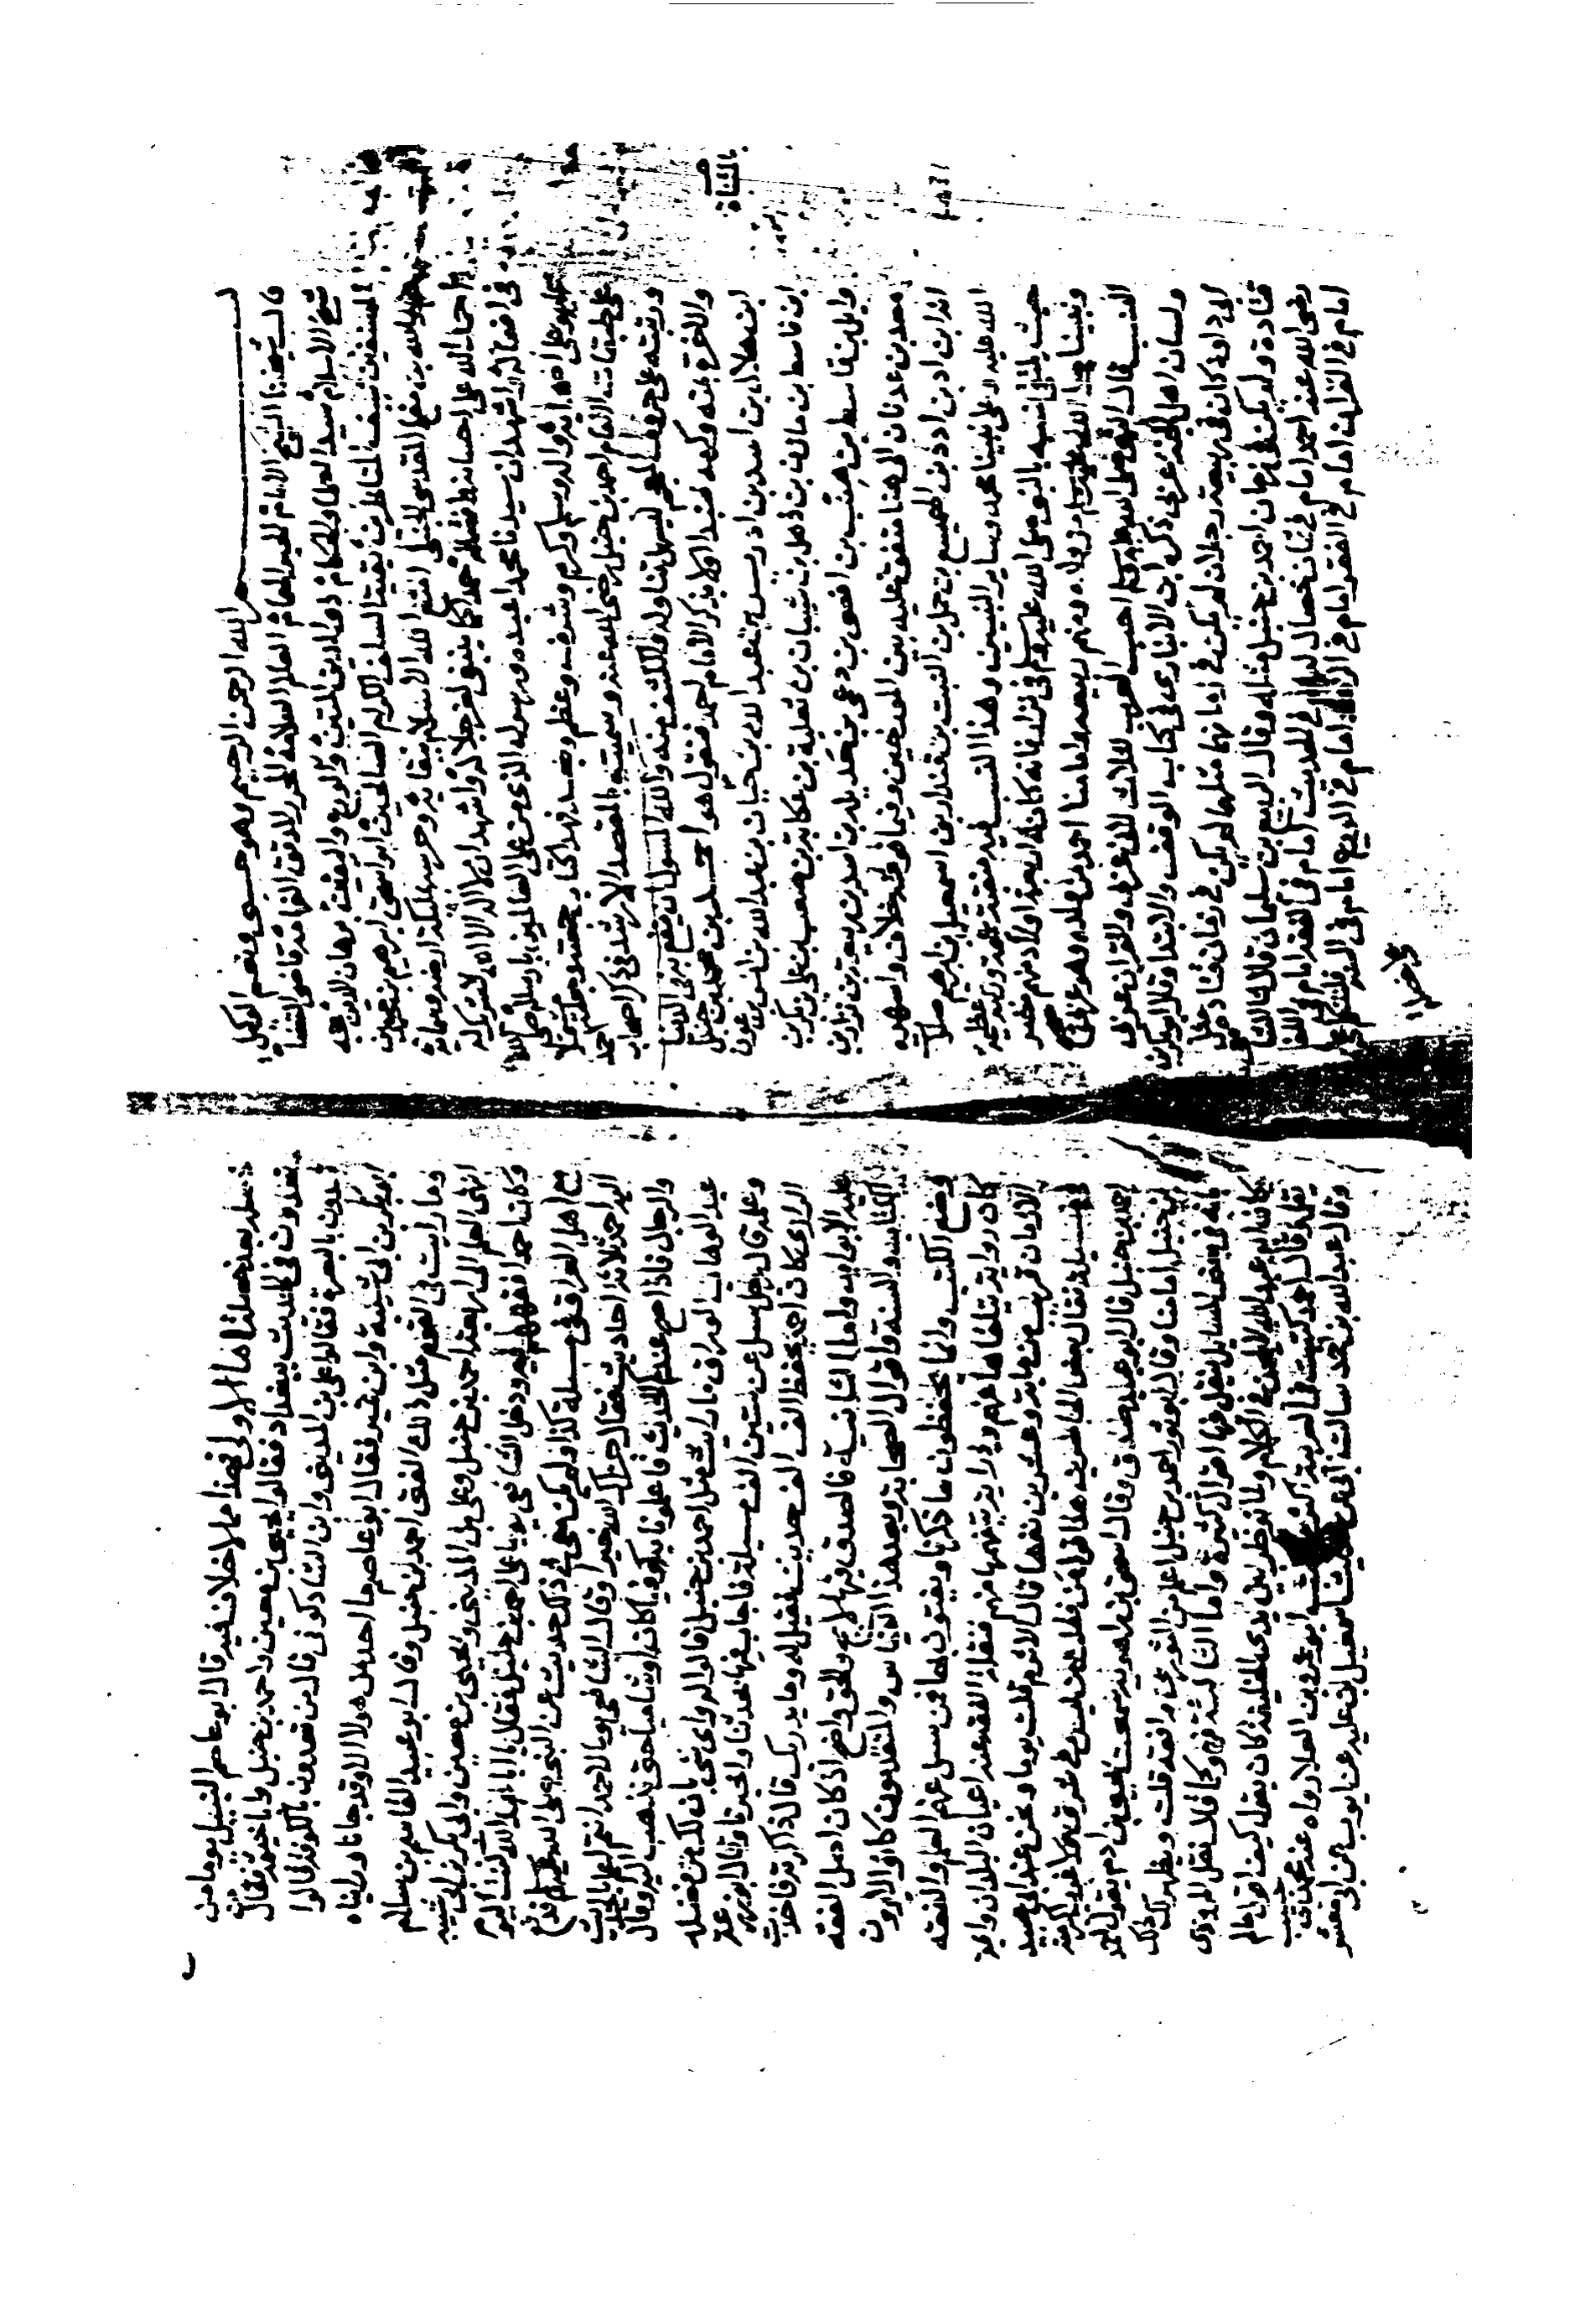 بسم الله الرحمن الرحيم وهو حسبي ونعم الوكيل
قال شيخنا الشيخ الامام الحبر الهمام العالم العلامة المحرر المدقق الفهامة قاضي القضاة
شيخ الاسلام سيد العلما والحكام ذو الدين المتين والورع واليقين برهان الدين حجة
المصنفين سيف المناظرين بقية السلف الكرام الصالحين ابو اسحق ابرهيم بن محمد بن
عبد الله بن مفلح المقدسي الحنبلي امتع الله الاسلام ببقايه وحرس
احمد الله على احسانه وافضاله حمدا كما ينبغي لعز جلاله واشهد ان لا اله الا الله لا شريك له
في افعاله واشهد ان سيدنا محمدا عبده ورسوله الذي من على العالمين بارساله صلى الله
عليه وعلى اله وسلم وكرم وشرف وعظم وبعد فهذا كتاب مختصر جعلته مشتملا
على طبقات الامام احمد بن حنبل رضي الله عنه وسميته بالمقصد الارشد في ذكر اصحاب احمد
ورتبته على حروف المعجم ليسهل تناوله والكشف منه والله المسول ان ينفع به في الدنيا
والاخرة بمنه وكرمه فنبدا اولا بذكر الامام احمد فنقول هو احمد بن محمد بن حنبل
ابن هلال بن اسد بن ادريس بن عبد الله بن حيان بن عبد الله بن انس بن عوف
ابن قاسط بن مازن بن ذهل بن شيبان بن ثعلبة بن عكابة بن صعب بن علي بن بكر بن
وايل بن قاسط بن هنب بن افصى بن دعمي بن جديلة بن اسد بن ربيعة بن نزار بن
معد بن عدنان الى هنا متفق عليه بين المورخين وفيما فوقه خلاف واسهره
ابن اد بن ادد بن الهميسع بن حمل بن النبت بن قيدار بن اسمعيل بن ابرهيم صلى
الله عليه وعلى نبينا محمد وساير النبيين وهذا النسب فيه منقبة عظيمة ورتبة عظيمة
حيث يلتقي نسبه بالنبي صلى الله عليه وسلم في نزار فانه كان له اربعة اولاد منهم مضر
ونبينا محمد صلى الله عليه وسلم من ولده ومنهم ربيعة وامامنا احمد من ولده وهو عربي صحيح
النسب قال النبي صلى الله عليه وسلم احب العرب لثلاث لاني عربي والقران عربي
ولسان اهل الجنة عربي ذكره ابن الانباري في كتاب الوقف والابتدا وقال ابو بكر بن
ابي داود كان في ربيعة رجلان لم يكن في زمانهما مثلهما لم يكن في زمان قتادة مثل
قتادة ولم يكن في زمان احمد بن حنبل مثله وقال الربيع بن سليمان قال لنا الشافعي
رضي الله عنه احمد امام في ثمان خصال امام في الحديث امام في الفقه امام في اللغة
امام في القران امام في الفقر امام في الزهد امام في الورع امام في السنة
فلنتكلم على
بالمثناة
صح
خصلة بعد خصلة اما الاولى فهذا مما لا خلاف فيه قال ابو عاصم النبيل يوما من
تعدون في الحديث ببغداد فقالوا يحيى بن معين واحمد بن حنبل وابا خيثمة فقال من
تعدون بالبصرة فقالوا علي بن المديني وابن الشاذكوني قال من تعدون بالكوفة قالوا
ابو بكر بن ابي شيبة وابن نمير فقال ابو عاصم ما احد من هولا الا وقد جانا ورايناه
وما رايت في القوم مثل ذلك الفتى احمد بن حنبل وقال ابو عبيد القاسم بن سلام
انتهى العلم الى اربعة احمد بن حنبل وعلي بن المديني ويحيى بن معين وابي بكر بن ابي شيبة
وكان احمد افقههم فيه ودخل الشافعي يوما على احمد بن حنبل فقال يا ابا عبد الله كنت اليوم
مع اهل العراق في مسيلة كذا ولو كان معي حديث عن النبي صلى الله عليه وسلم فدفع
اليه احمد ثلاثة احاديث فقال جزاك الله خيرا وقال الشافعي يوما لاحمد انتم اعلم بالحديث
والرجال فاذا صح عندكم الحديث فاعلمونا به كوفيا كان او شاميا حتى نذهب اليه وقال
عبد الوهاب الوراق ما رايت مثل احمد بن حنبل قالوا له واي شي بان لك من فضله
وعلمه قال رجل سيل عن ستين الف مسيلة فاجاب فيها حدثنا واخبرنا وقال ابو زرعة
الرازي كان احمد يحفظ الف الف حديث فقيل له وما يدريك قال ذاكرته فاخذت
عليه الابواب واما الثانية فالصدق فيها لايح والحق واضح اذ كان اصل الفقه
الكتاب والسنة واقوال الصحابة وبعد هذا القياس والمتقدمون كانوا لا يرون
وضع الكتب وانما يحفظون ما ذكرنا ويفتون بها فمن سيل عنهم العلم والفقه
كان رواية يتلقاها عنهم ودراية يتفهمها منهم فنقل الفقه عنه اعيان البلدان وايمة
الازمان قريب من ماية وعشرين نفسا قال الاثرم قلت يوما ونحن عند ابي عبيد
في مسيلة فقال بعض الحاضرين هذا قول من فقلت من ليس في شرق ولا غرب اكبر منه
احمد بن حنبل قال ابو عبيد صدق وقال اسحق بن راهويه سمعت يحيى بن ادم يقول احمد
بن حنبل امامنا وقال ابو ثور احمد بن حنبل اعلم من الثوري وافقه قلت ويظهر لك ذلك
بانه في بعض المسايل ينقل عنه اقوال كثيرة واما الثالثة فهو كما قال نقل المروذي
كان ابو عبد الله لا يلحن في الكلام ولما نوظر بين يدي الخليفة كان يقول كيف اقول ما لم
يقل وقال احمد كتبت في العربية اكثر مما كتب ابو عمرو بن العلا رواه عنه محمد بن حبيب
وقال عبد الله بن احمد سالت ابي عن حديث اسمعيل بن علية عن ايوب عن ابي معشر